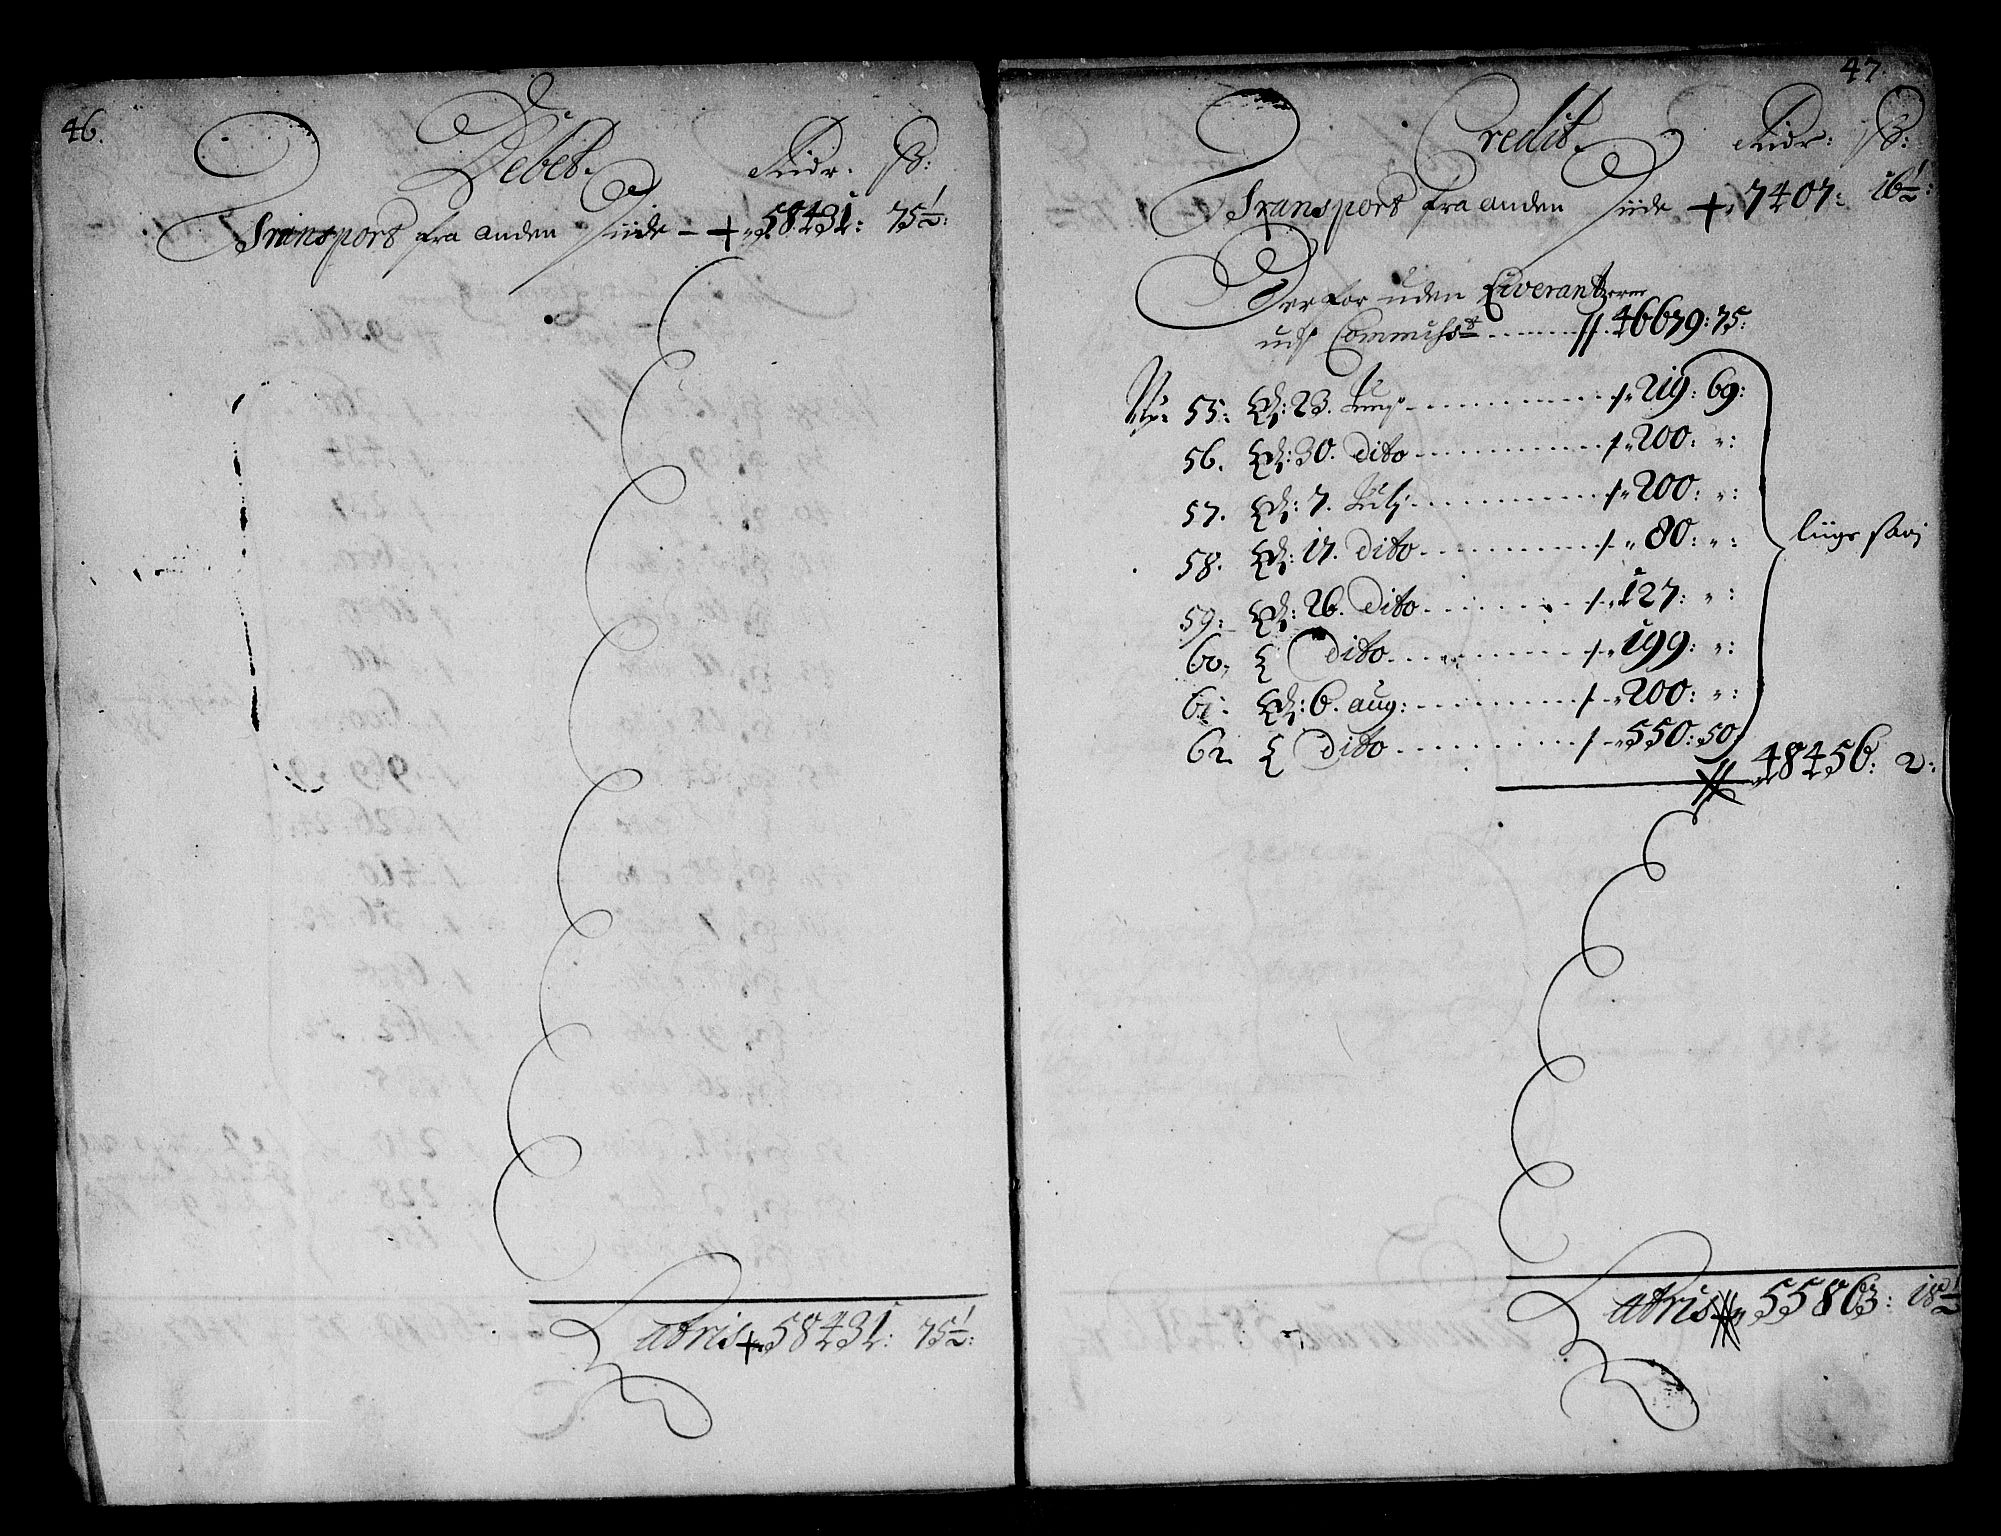 46.
Debet. Ridr. ß:
Transport fra anden Siide - + 58431: 75½:
Latris + 58431: 75½:
47.
Credit. Ridr: ß:
Transport fra anden Siide + 7407: 16½:
Derfor uden Liverantzerne
udj Commiss ........ 46679: 75:
No: 55: 23. Junj ........ 219: 69:
56. 30. dito ........ 200: ":
57. 7. Julj ........ 200: ":
58. 17. dito ........ 80: ":
liige saa
59: 26. dito ........ 127: ":
60. dito ........ 199: ":
61. 6. aug: ........ 200: ":
62 dito ........ 550: 50:
48456: 2:
Latris 55863: 18½